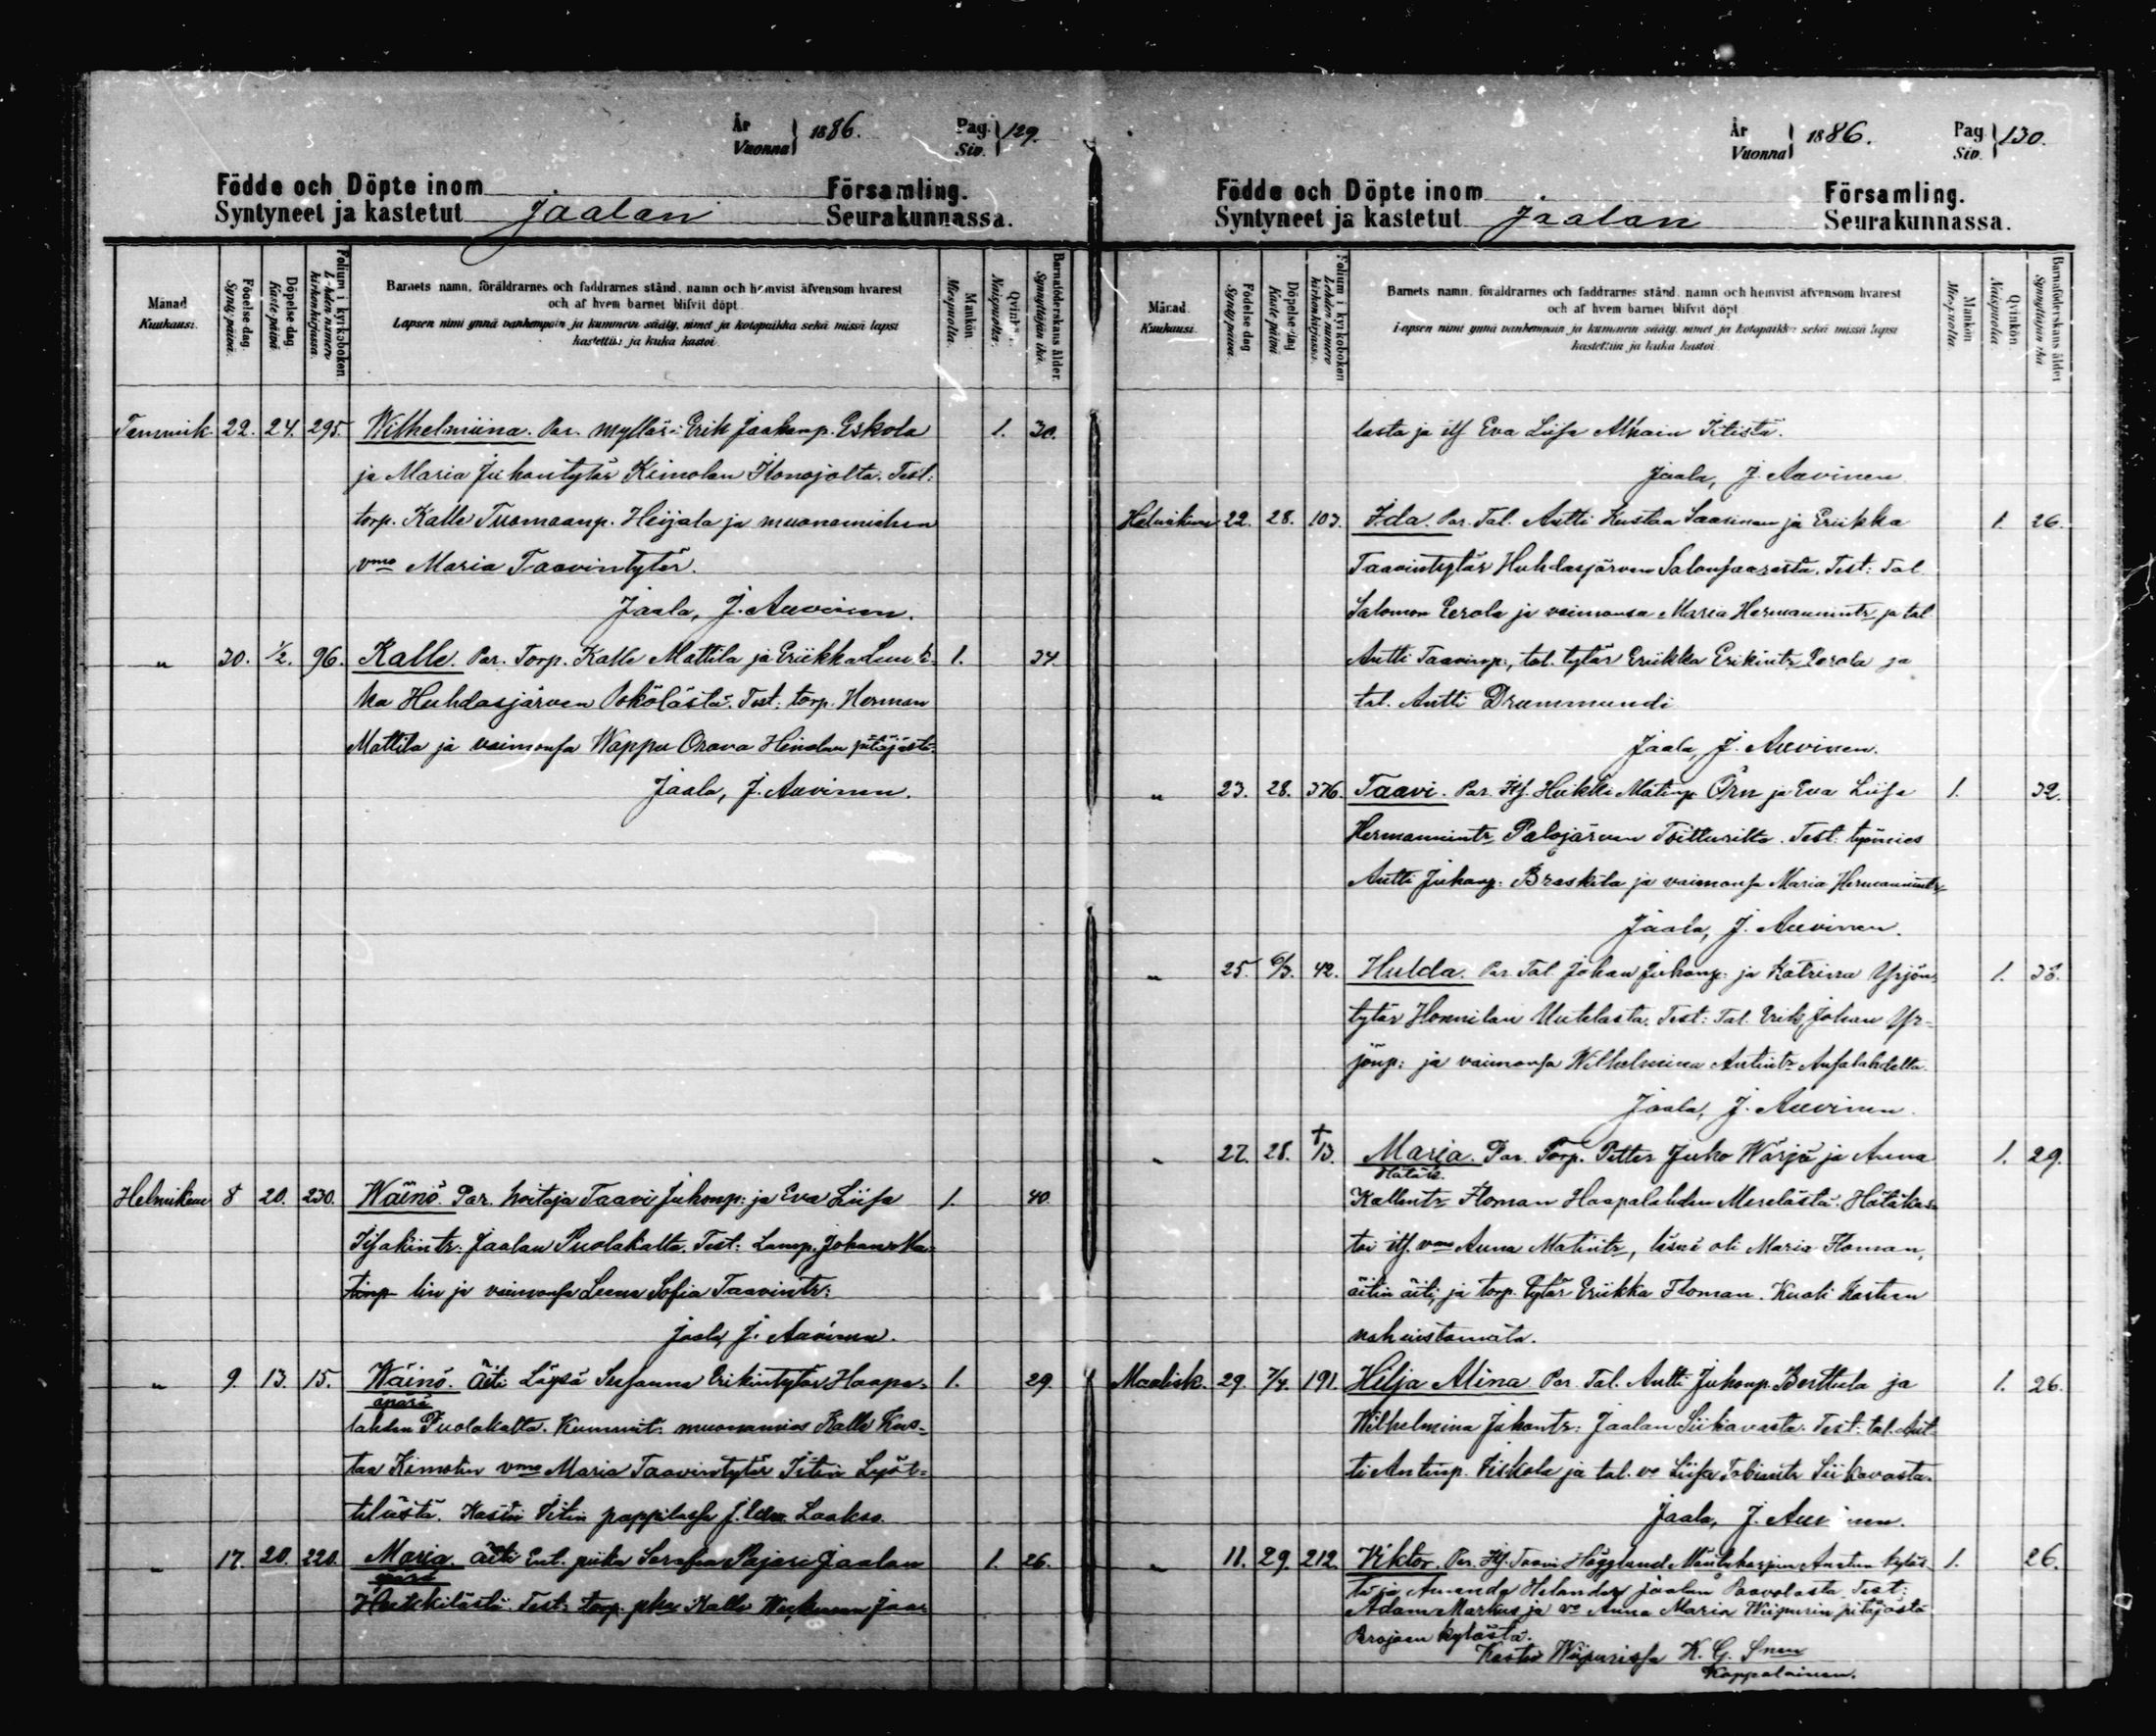 År
Vuonna 1886.
Pag.
Siv. 129.
Födde och Döpte inom Församling.
Syntyneet ja kastetut Jaalan Seurakunnassa.
Månad
Kuukausi.
Födelse dag.
Synty päivä.
Döpelse dag.
Kaste päivä.
Folium i kyrkoboken
Lehden numero kirkonkirjassa.
Barnets namn, föräldrarnes och faddrarnes stånd, namn och hemvist äfvensom hvarest
och af hvem barnet blifvit döpt.
Lapsen nimi ynnä vanhempain ja kummein sääty, nimet ja kotopaikka sekä missä lapsi
kastettiin ja kuka kastoi.
Mankön
Miespuolia.
Qvinkön
Naispuolia.
Barnaföderskans ålder.
Synnyttäjän ikä.
Tammik. 22. 24. 295. Wilhelmiina. Par. mylläri Erik Jaakonp. Eskola 1. 30.
ja Maria Juhontytär Kimolan Ilonojalta. Test:
torp. Kalle Tuomaanp. Heijala ja muonamiehen
vmo Maria Taavintytär.
Jaala, J. Auvinen.
" 30. 1/2. 96. Kalle. Par. Torp. Kalle Mattila ja Eriikka 1. 34.
ka Huhdasjärven Pokölästä. Test: torp. Herman
Mattila ja vaimonsa Wappu Orava Heinolan pitäjästä.
Jaala, J. Auvinen.
Helmikuu 8 20. 230. Wäinö. Par. hoitaja Taavi Juhonp: ja Eva Liisa 1. 40.
Iisakintr: Jaalan Puolakalta. Test: Lamp. Johan Ma-
tinp. lin ja vaimonsa Leena Sofia Taavintr:
Jaala, J. Auvinen.
" 9. 13. 15. Wäinö. Äiti Löysä Susanna Erikintytär Haapa- 1. 29.
äpärä
lahden Puolakalta. Kummit: muonamies Kalle Kus-
taa Kimolin vmo Maria Taavintytär Iitin Lyöt-
tilästä. Kastoi Iitin pappilassa J. Edv. Laakso.
" 17. 20. 220. Maria. Äiti Ent. piika Serafia Pajari Jaalan 1. 26.
äpärä
Huhkilästä. Test: torp. Kalle Jaa-
År
Vuonna 1886.
Pag
Siv. 130.
Födde och Döpte inom Församling.
Syntyneet ja kastetut Jaalan Seurakunnassa.
Månad.
Kuukausi.
Födelse dag
Synty päivä.
Döpelse dag
Kaste päivä.
Folium i kyrkoboken
Lehden numero kirkonkirjassa.
Barnets namn, föräldrarnes och faddrarnes stånd, namn och hemvist äfvensom hvarest
och af hvem barnet blifvit döpt
Lapsen nimi ynnä vanhempain ja kummein sääty, nimet ja kotopaikka sekä missä lapsi
kastettiin ja kuka kastoi
Mankön
Miespuolia.
Qvinkön
Naispuolia.
Barnaföderskans ålder
Synnyttäjän ikä
lasta ja itf Eva Liisa Iitistä.
Jaala, J. Auvinen
Helmikuu 22. 28. 103. Ida. Par. Tal. Antti Kustaa Saarinen ja Eriikka 1. 26.
Taavintytär Huhdasjärven Salonsaaresta. Test: Tal.
Salomon Eerola ja vaimonsa Maria Hermannintr ja tal.
Antti Taavinp:, tal. tytär Eriikka Erikintr Eerola ja
tal. Antti Drummundi
Jaala, J. Auvinen.
" 23. 28. 376. Taavi. Par. Itf. Heikki Matinp Örn ja Eva Liisa 1. 32.
Hermannintr Palojärven Tritturilta. Test: työmies
Antti Juhanp: Braskila ja vaimonsa Maria Hermannintr.
Jaala, J. Auvinen.
" 25. 6/3. 42. Hulda. Par. Tal. Johan Juhanp: ja Katriina Yrjön- 1. 38.
tytär Honnilan Uutelasta. Test: Tal. Erik Johan Yr-
jönp: ja vaimonsa Wilhelmina Antintr Ansalahdelta.
Jaala, J. Auvinen.
" 27. 28. † 13. Maria. Par. Torp. Petter Juho Wärjä ja Anna 1. 29.
Hätäk.
Kallentr Floman Haapalahden Merelästä. Hätäkas-
toi itf. vmo Anna Matintr, läsnä oli Maria Floman,
äitin äiti, ja torp. tytär Eriikka Floman. Kuoli Kasteen
vahvistamata.
Maalisk. 29. 7/4. 191. Hilja Alina. Par. Tal. Antti Juhonp. Berttula ja 1. 26.
Wilhelmina Juhontr: Jaalan Siikavasta. Test: tal. Ant-
ti Antinp. Eskola ja tal. vo Liisa Tobiintr Siikavasta.
Jaala, J. Auvinen.
" 11. 29. 212. Viktor. Par. Itf. Taavi Högglund Mäntyharjun kyläs- 1. 26.
tä ja Amanda Helander Jaalan Paavolasta Test:
Adam Markus ja vo Anna Maria Wiipurin pitäjästä
Perojoen kylästä.
Kastoi Wiipurissa K. G. Snen
Kappalainen.